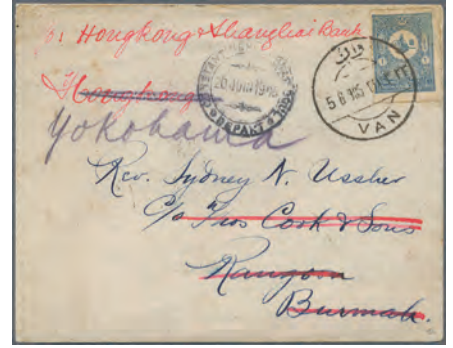 ℅: Hongkong & Shanghai Bank
Hongkong
Yokohama
Rev. Sydney N. Ussher
c/o Thos Cook & Sons
Rangoon
Burmah.
DEPART
وان
VAN